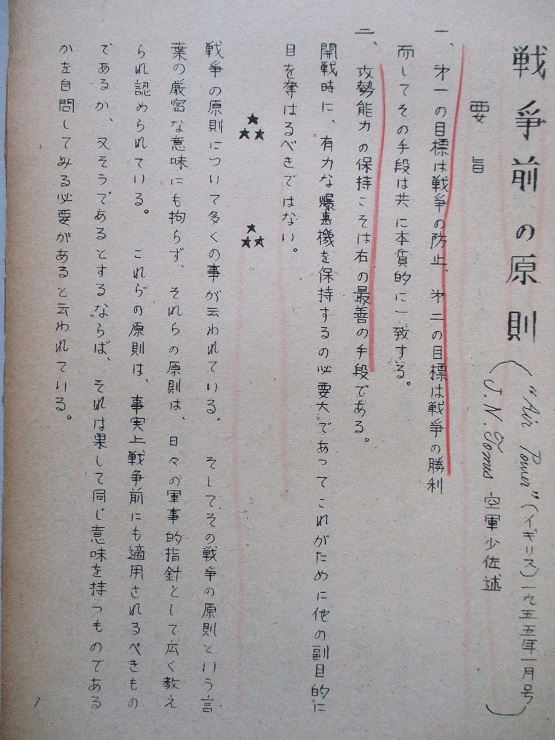 戦争前の原則
(“Air Power”(イギリス)一九五五年一月号
J. N. Toms 空軍少佐述)
要旨
一、 才一の目標は戦争の防止、才二の目標は戦争の勝利
而してその手段は共に本質的に一致する。
二、 攻勢能力の保持こそは右の最善の手段である。
開戦時に、有力な爆撃機を保持するの必要大であってこれがために他の副目的に
目を奪はるべきではない。
★★★ ★★★
戦争の原則について多くの事が云われている。 そしてその戦争の原則という言
葉の厳密な意味にも拘らず、それらの原則は、日々の軍事的指針として広く教え
られ認められている。 これらの原則は、事実上戦争前にも適用されるべきもの
であるか、又そうであるとするならば、それは果して同じ意味を持つものである
かを自問してみる必要があると云われている。
1